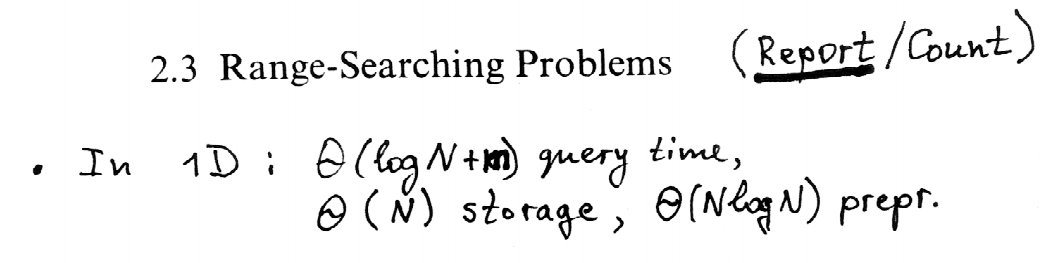 2.3 Range-Searching Problems (Report/Count)
• In 1D : Θ(log N+m) query time,
Θ(N) storage, Θ(N log N) prepr.